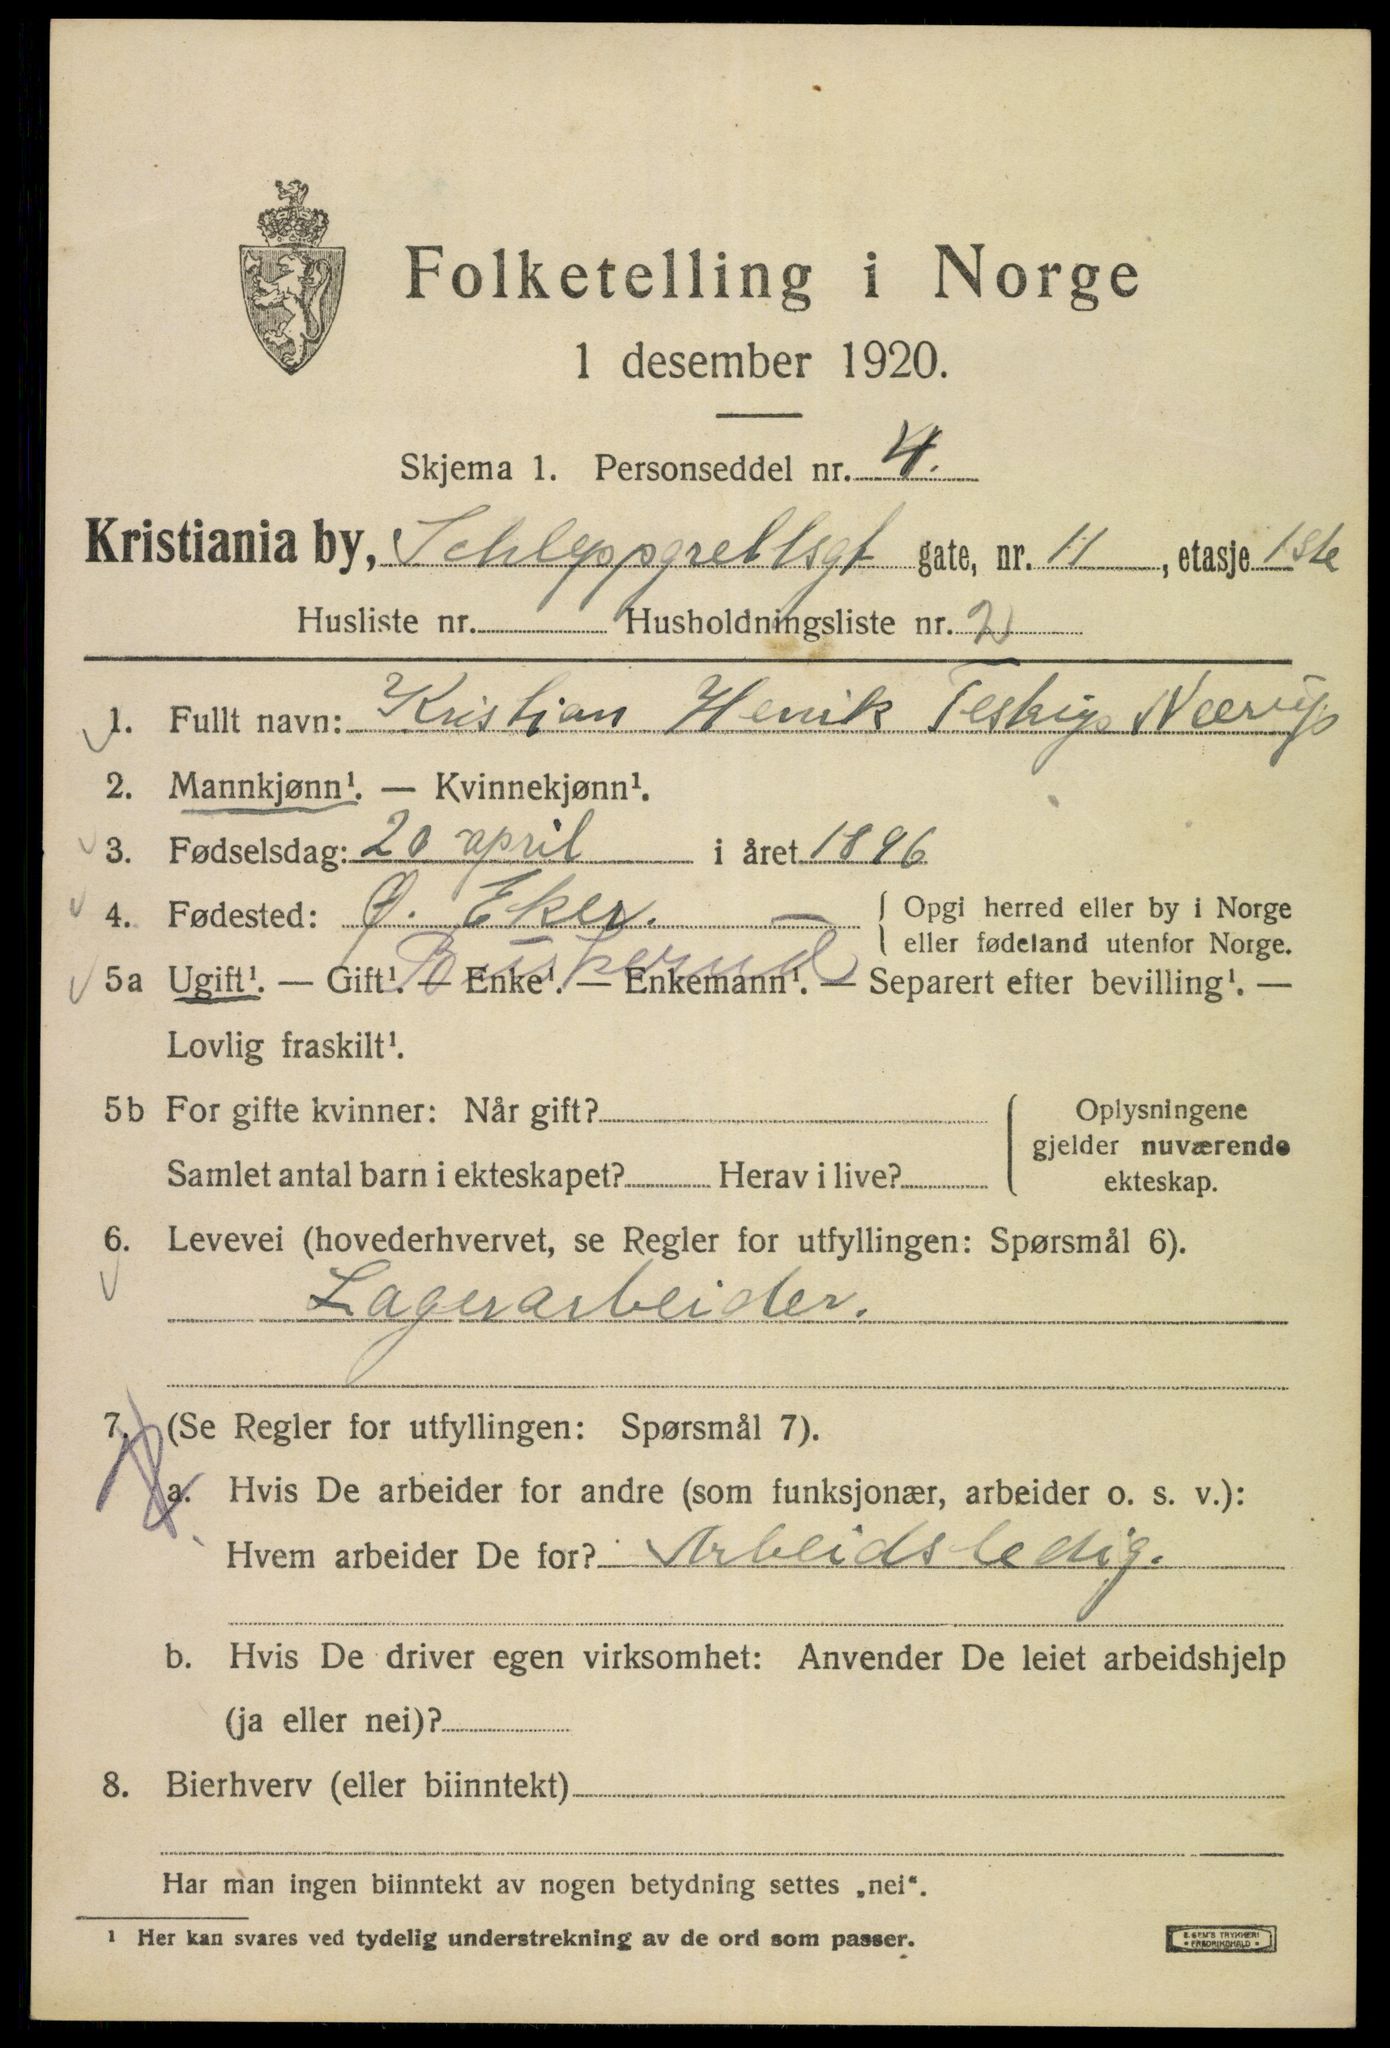 Folketelling i Norge
1 desember 1920.
Skjema 1. Personseddel nr. 4.
Kristiania by, Schleppgrellsgt gate, nr. 11, etasje 1ste
Husliste nr. Husholdningsliste nr. 2
1. Fullt navn: Kristian Henrik Neerup
2. Mannkjønn¹. — Kvinnekjønn¹.
3. Fødselsdag: 20 april i året 1896
4. Fødested: Ø. Eker. { Opgi herred eller by i Norge
eller fødeland utenfor Norge.
Buskerud
5a Ugift¹. — Gift¹. — Enke¹. — Enkemann¹. — Separert efter bevilling¹. —
Lovlig fraskilt¹.
5b For gifte kvinner: Når gift? { Oplysningene
gjelder nuværende
Samlet antal barn i ekteskapet? Herav i live? ekteskap.
6. Levevei (hovederhvervet, se Regler for utfyllingen: Spørsmål 6).
Lagerarbeider.
7. (Se Regler for utfyllingen: Spørsmål 7).
a. Hvis De arbeider for andre (som funksjonær, arbeider o. s. v.):
Hvem arbeider De for? Arbeidsledig.
b. Hvis De driver egen virksomhet: Anvender De leiet arbeidshjelp
(ja eller nei)?
8. Bierhverv (eller biinntekt)
Har man ingen biinntekt av nogen betydning settes „nei“.
¹ Her kan svares ved tydelig understrekning av de ord som passer.
E. SEM'S TRYKKERI
• FREDRIKSHALD •